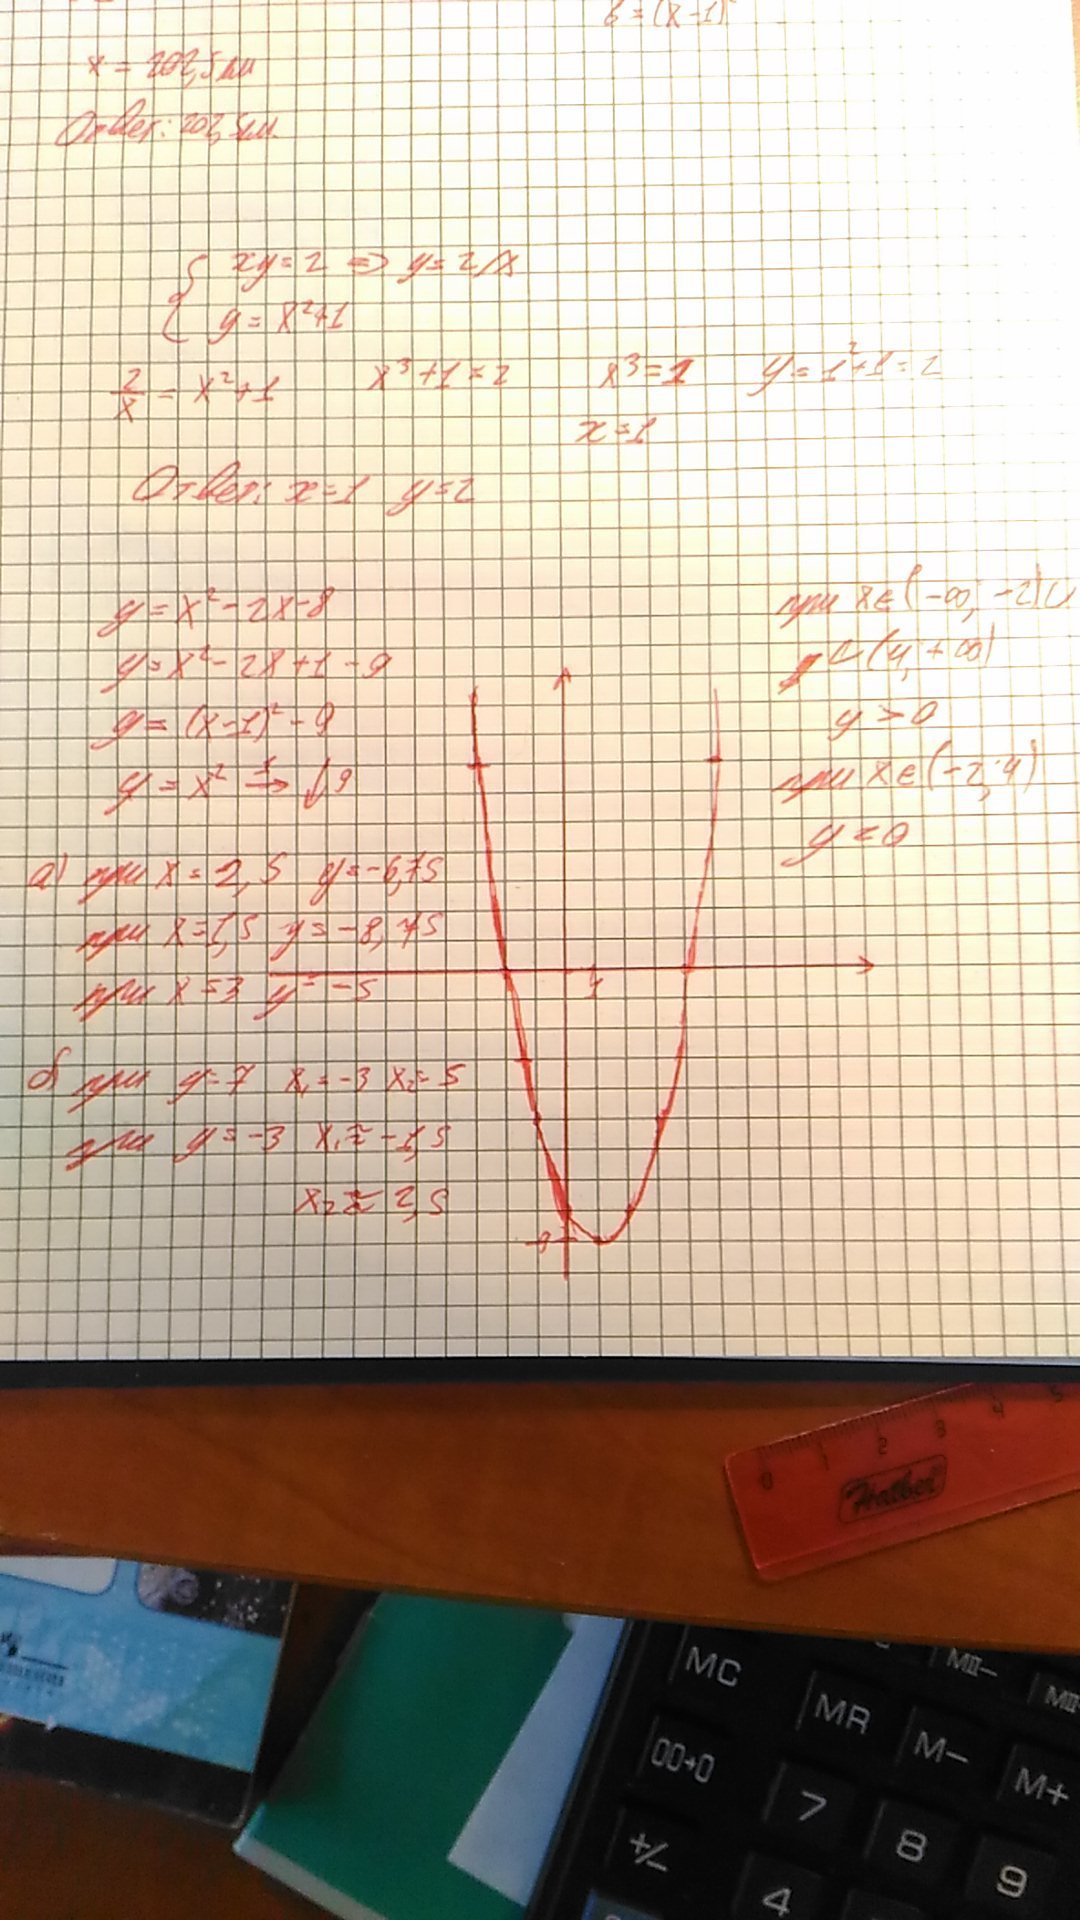 b = (x-1)
x = 202,5 км
Ответ: 202,5 км.
{ xy = 2 => y = 2/x
y = x²+1
2/x = x²+1 x³+1=2 x³=1 y=1²+1=2
x=1
Ответ: x=1 y=2
y = x²-2x-8
y=x²-2x+1-9
y= (x-1)²-9
y = x² 1→ ↓9
а) при x = 2,5 y=-6,75
при x=1,5 y=-8,75
при x=3 y=-5
б при y=7 x₁=-3 x₂=5
при y=-3 x₁≈-1,5
x₂≈2,5
1
-9
при x∈(-∞; -2)∪
∪(4, +∞)
y>0
при x∈(-2;4)
y<0
0 1 2 3 4 5
Hatber
MC
MII-
MII
MR
M-
M+
00→0
7
8
9
+/-
4